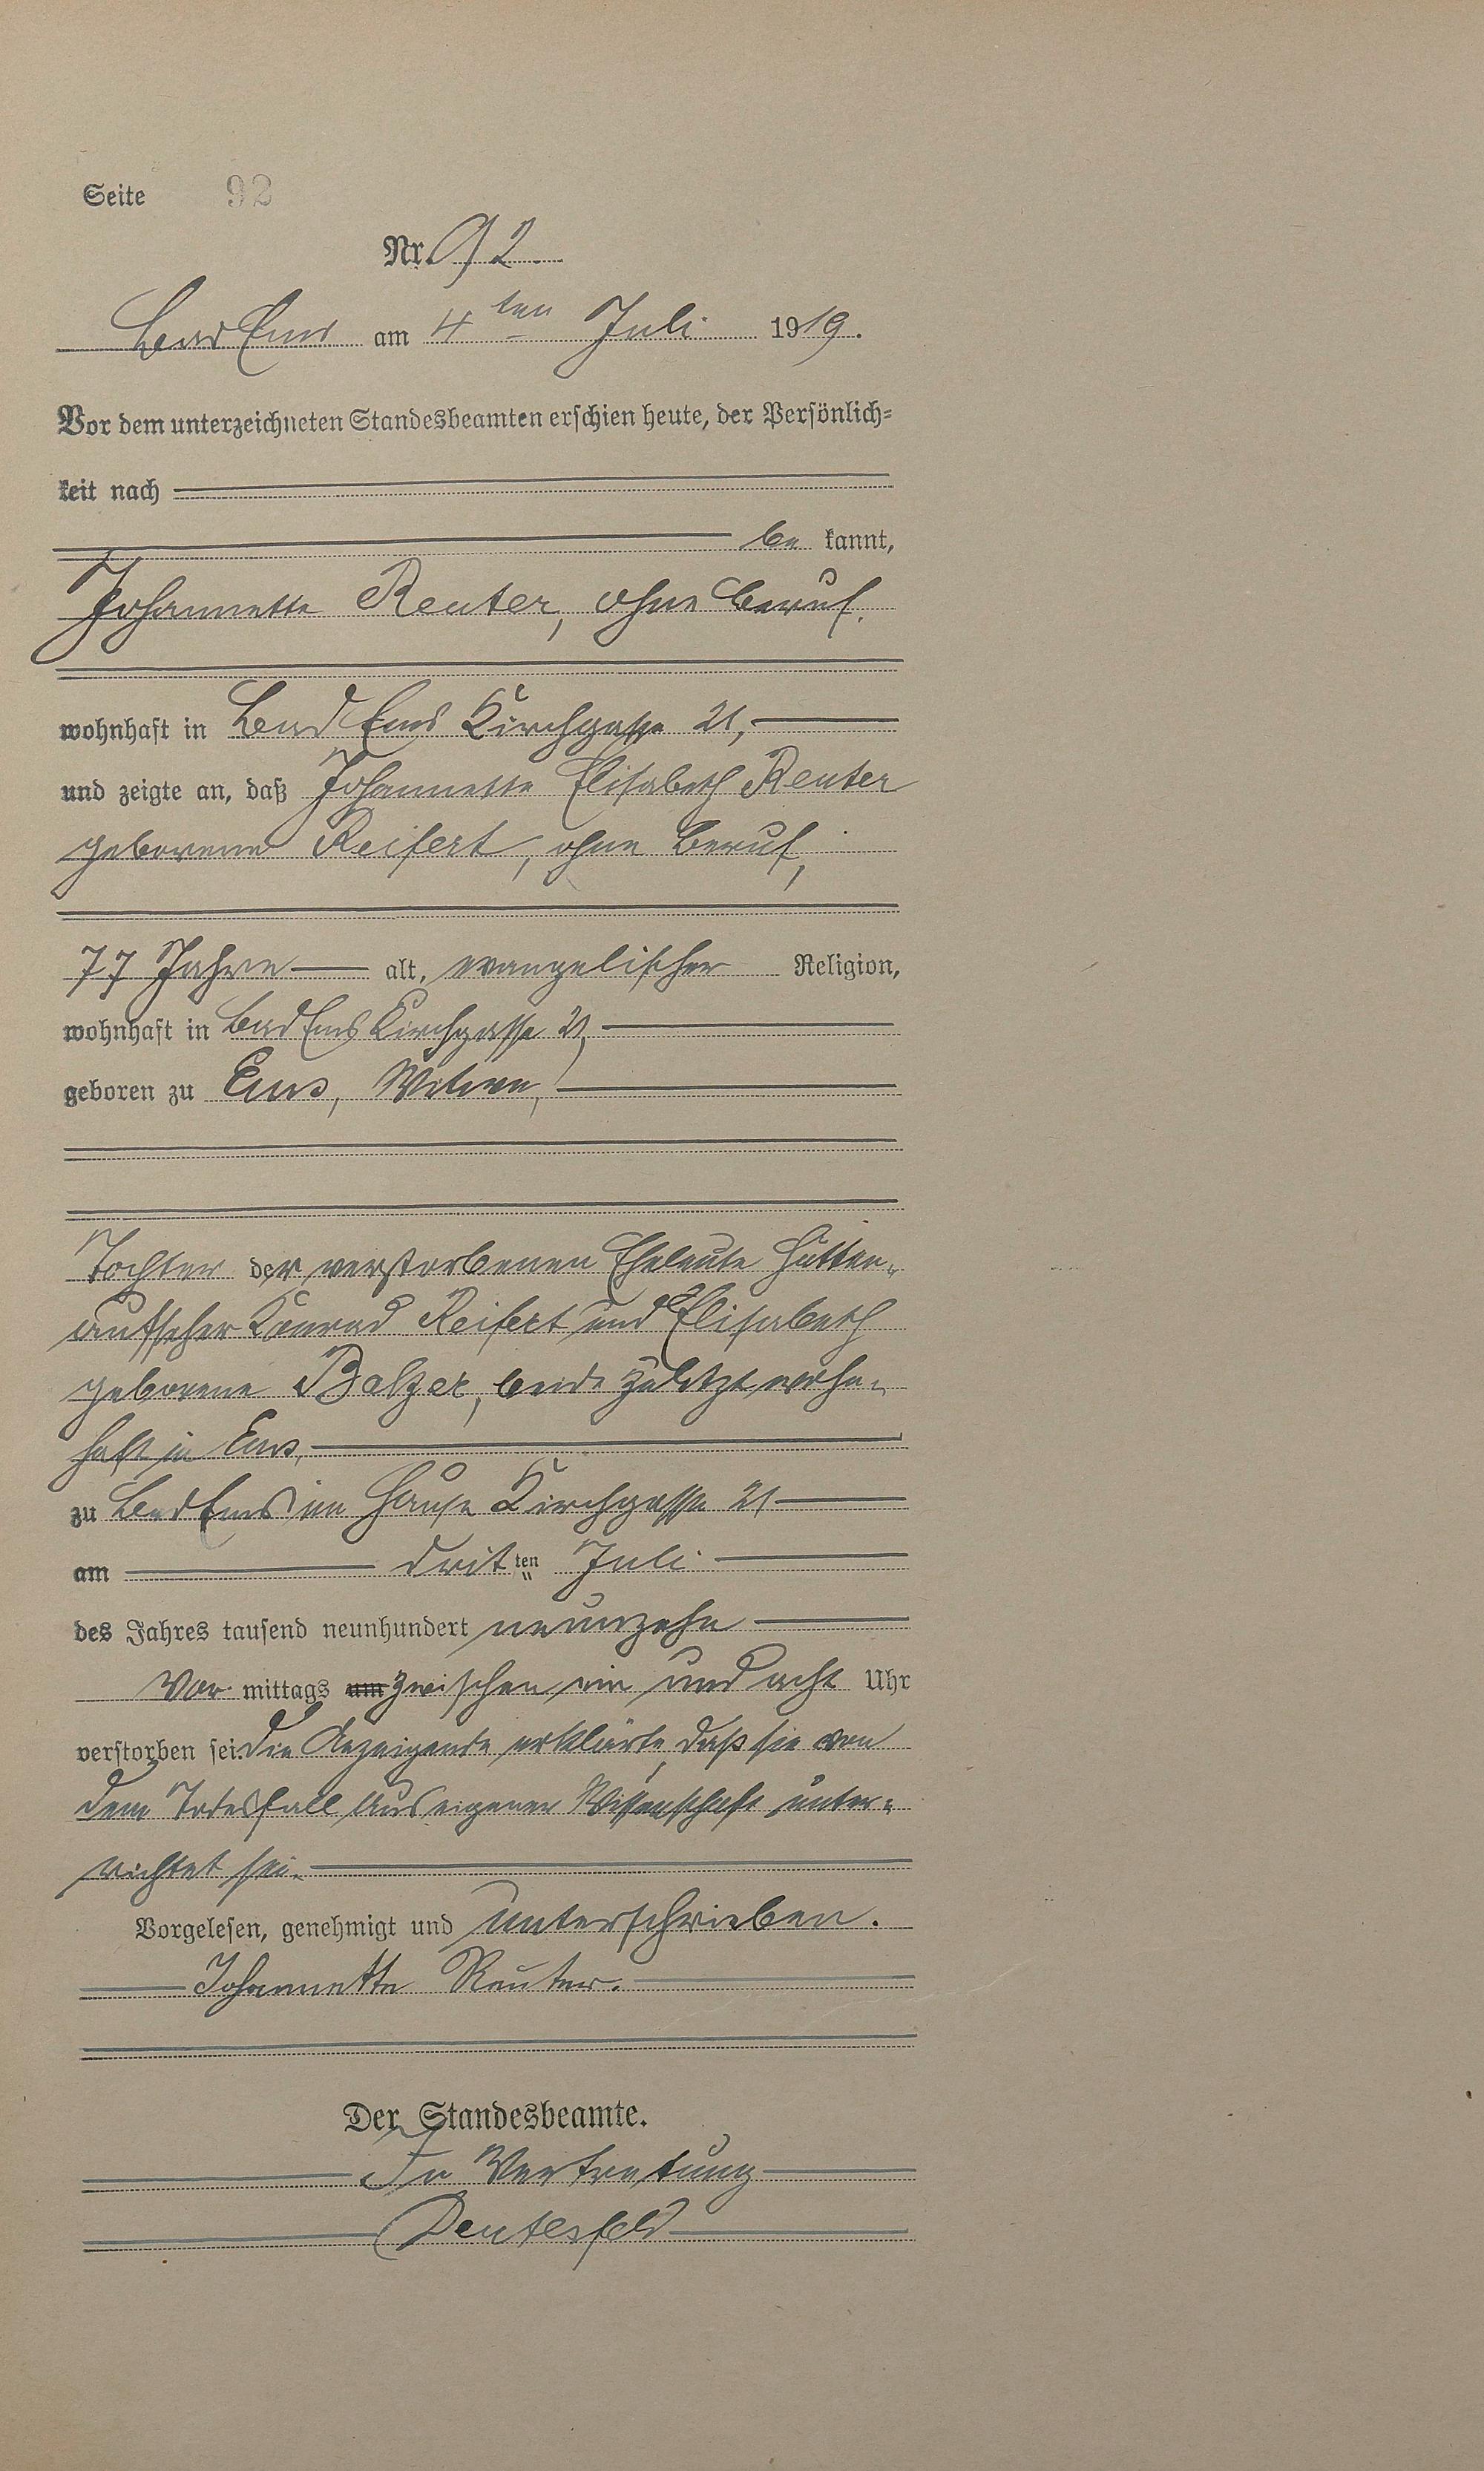 Seite 92
Nr. 92.
Bad Ems am 4ten Juli 1919.
Vor dem unterzeichneten Standesbeamten erschien heute, der Persönlich-
keit nach
be kannt,
Johannette Reuter, ohne Beruf,
wohnhaft in Bad Ems Kirchgasse 21,
und zeigte an, daß Johannette Elisabeth Reuter
geborene Reifert, ohne Beruf,
77 Jahre alt, evangelischer Religion,
wohnhaft in Bad Ems Kirchgasse 21,
geboren zu Ems, Witwe,
Tochter der verstorbenen Eheleute Hütten-
aufseher Konrad Reifert und Elisabeth
geborene Balzer, beide zuletzt wohn-
haft in Ems,
zu Bad Ems im Hause Kirchgasse 21
am dritten Juli
des Jahres tausend neunhundert neunzehn
Vor mittags um zwischen ein und acht Uhr
verstorben sei. Die Anzeigende erklärte, daß sie von
dem Todesfall aus eigener Wissenschaft unter-
richtet sei.
Vorgelesen, genehmigt und unterschrieben.
Johannette Reuter.
Der Standesbeamte.
In Vertretung